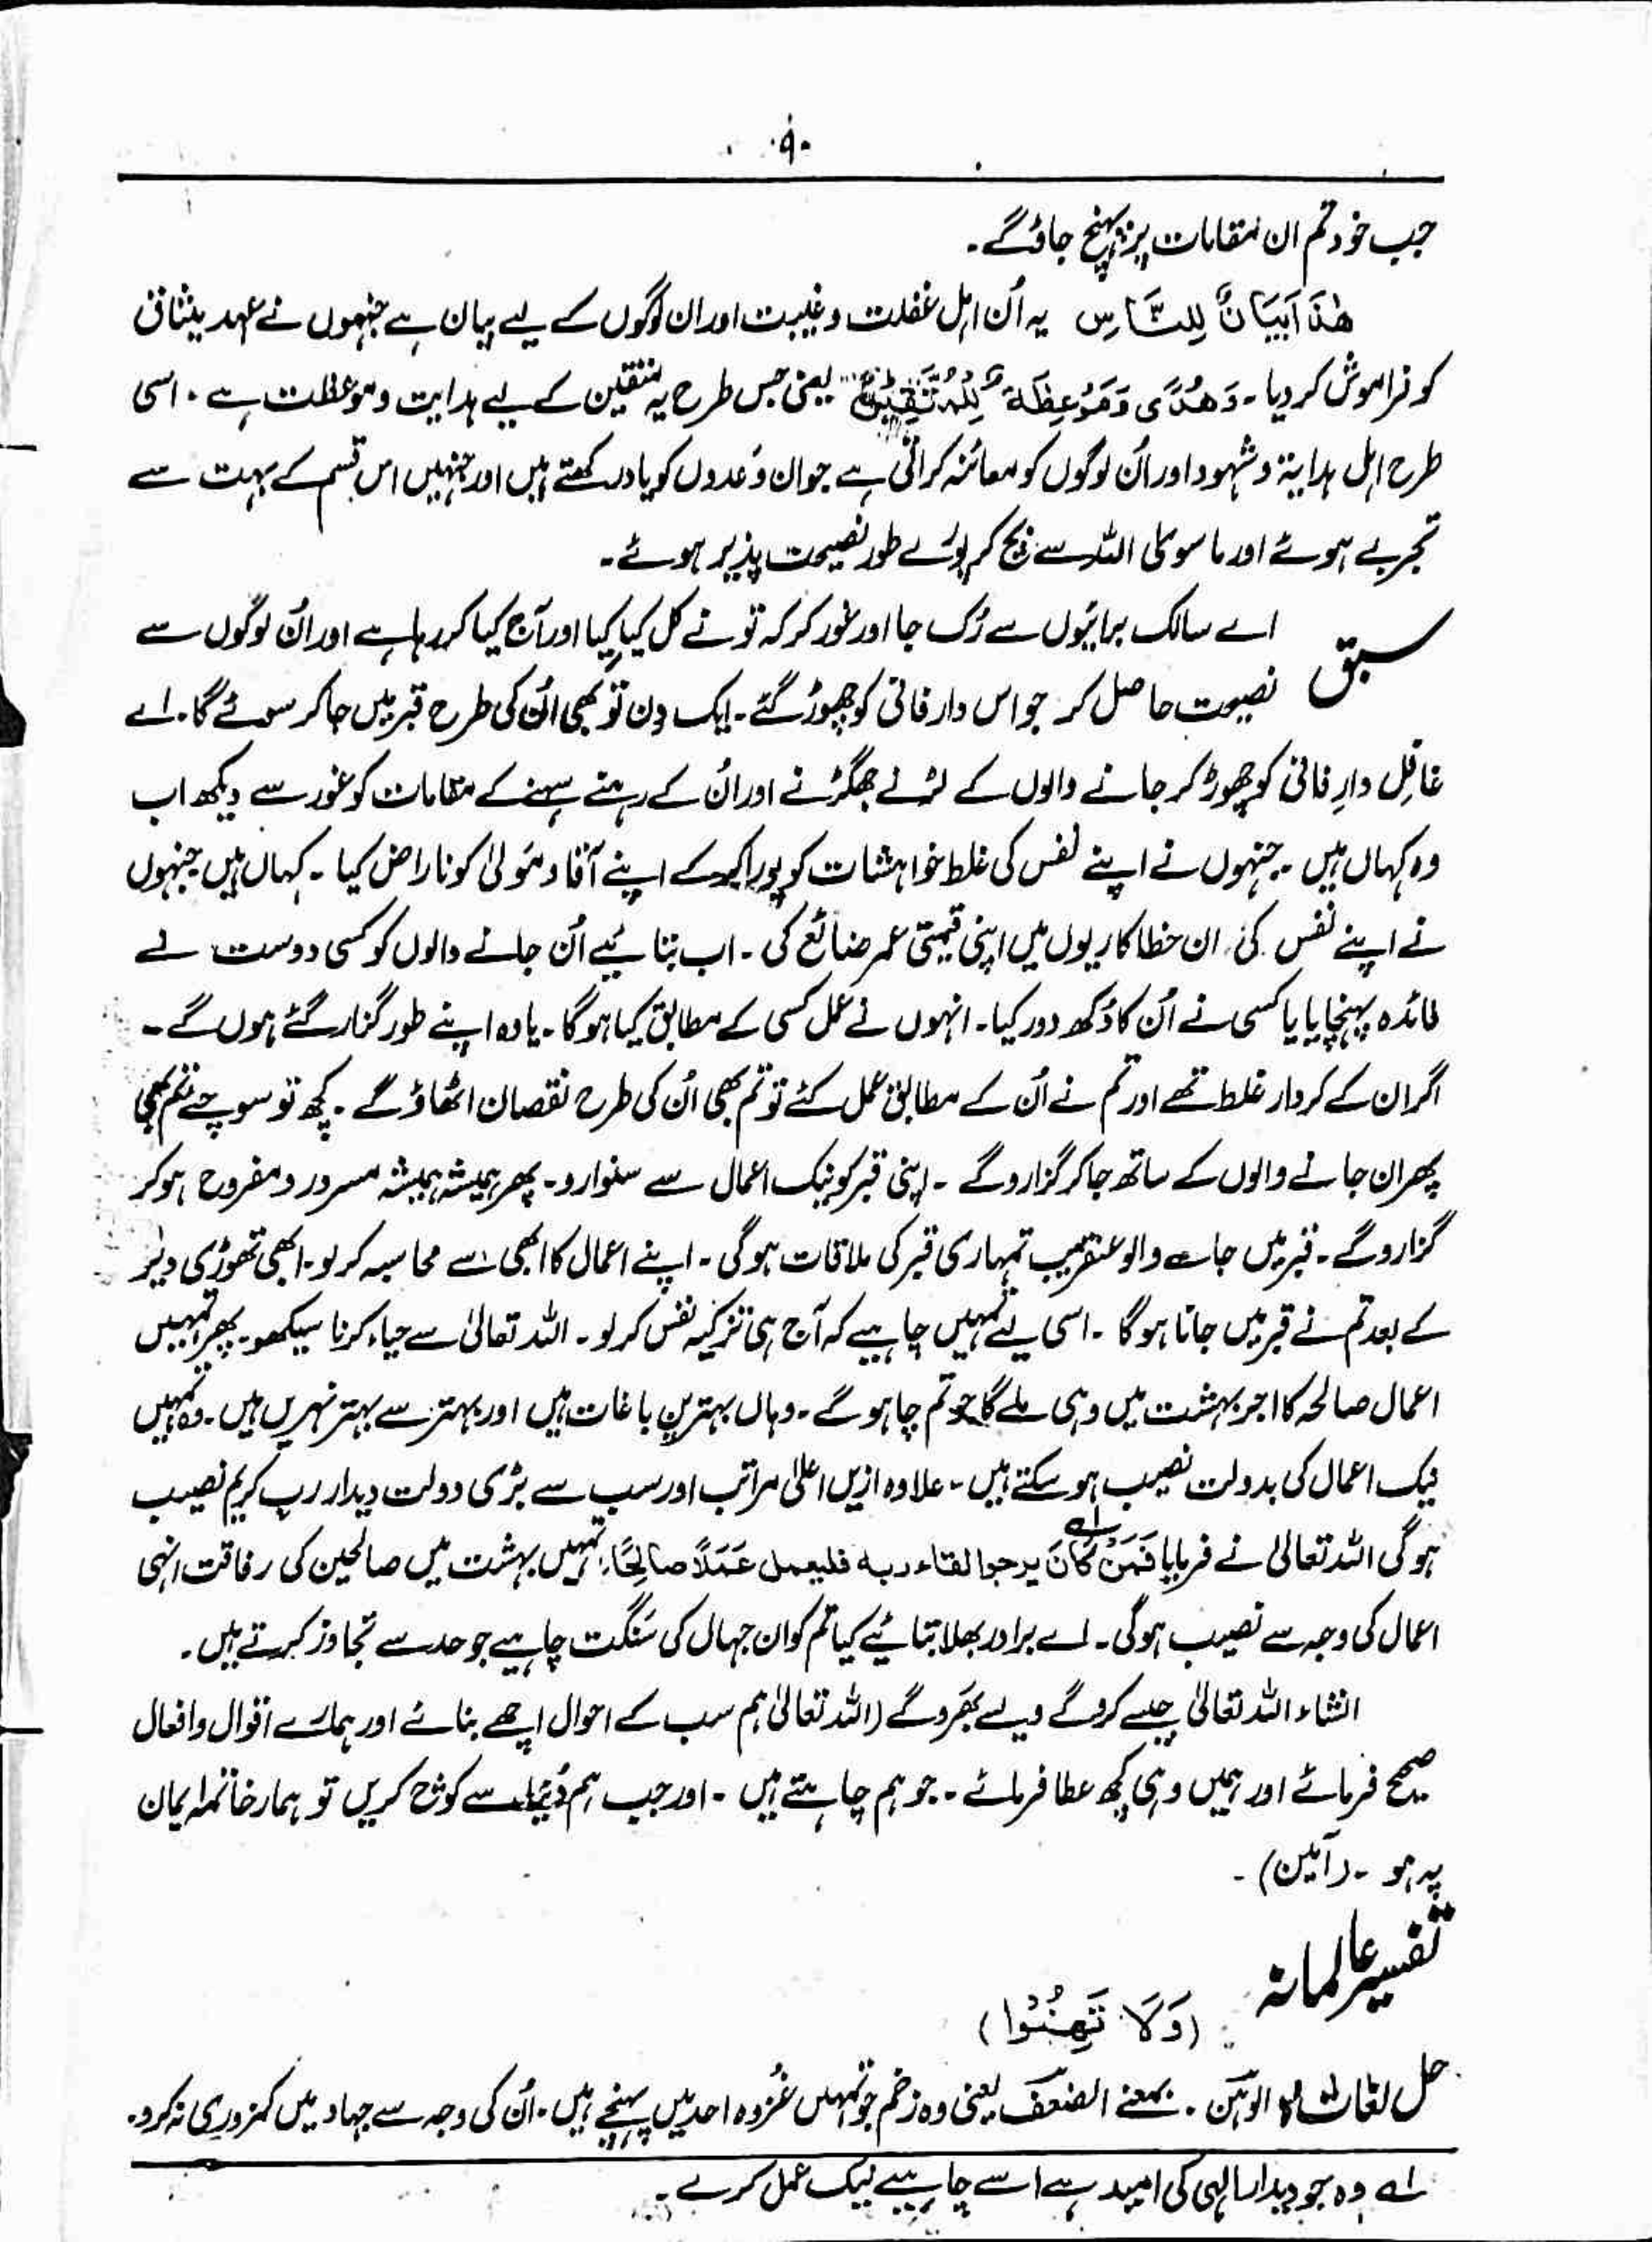 ۹۰
جب خود تم ان مقامات پر پہنچ جاؤ گے۔
هٰذَا بَيَانٌ لِلنَّاسِ یہ اُن اہل غفلت و غیبت اور ان لوگوں کے لیے بیان ہے جنہوں نے عہد میثاق
کو فراموش کر دیا۔ وَهُدًى وَمَوْعِظَةٌ لِلْمُتَّقِيْنَ یعنی جس طرح یہ متقین کے لیے ہدایت و موعظت ہے۔ اسی
طرح اہل ہدایۃ و شہود اور اُن لوگوں کو معائنہ کراتی ہے جو ان وعدوں کو یاد رکھتے ہیں اور جنہیں اس قسم کے بہت سے
تجربے ہوئے اور ماسوی اللہ سے بچ کر پورے طور نصیحت پذیر ہوئے۔
سبق اے سالک برائیوں سے رُک جا اور غور کر کہ تو نے کل کیا کِیا اور آج کیا کر رہا ہے اور اُن لوگوں سے
نصیحت حاصل کر جو اس دار فانی کو چھوڑ گئے۔ ایک دن تو بھی اُن کی طرح قبر میں جا کر سوئے گا۔ اے
غافل دارِ فانی کو چھوڑ کر جانے والوں کے لڑنے جھگڑنے اور اُن کے رہنے سہنے کے مقامات کو غور سے دیکھ اب
وہ کہاں ہیں۔ جنہوں نے اپنے نفس کی غلط خواہشات کو پورا کر کے اپنے آقا و مَولیٰ کو ناراض کیا۔ کہاں ہیں جنہوں
نے اپنے نفس کی ان خطا کاریوں میں اپنی قیمتی عمر ضائع کی۔ اب بتائیے اُن جانے والوں کو کسی دوست نے
فائدہ پہنچایا یا کسی نے اُن کا دُکھ دور کیا۔ انہوں نے عمل کسی کے مطابق کیا ہو گا۔ یا وہ اپنے طور گزار گئے ہوں گے۔
اگر ان کے کردار غلط تھے اور تم نے اُن کے مطابق عمل کئے تو تم بھی اُن کی طرح نقصان اٹھاؤ گے۔ کچھ تو سوچئے تم بھی
پھر ان جانے والوں کے ساتھ جا کر گزارو گے۔ اپنی قبر کو نیک اعمال سے سنوارو۔ پھر ہمیشہ ہمیشہ مسرور و مفروح ہو کر
گزارو گے۔ قبر میں جانے والو عنقریب تمہاری قبر کی ملاقات ہو گی۔ اپنے اعمال کا ابھی سے محاسبہ کر لو۔ ابھی تھوڑی دیر
کے بعد تم نے قبر میں جانا ہو گا۔ اسی لیے تمہیں چاہیے کہ آج ہی تزکیہ نفس کر لو۔ اللہ تعالیٰ سے حیاء کرنا سیکھو۔ پھر تمہیں
اعمال صالحہ کا اجر بہشت میں وہی ملے گا جو تم چاہو گے۔ وہاں بہترین باغات ہیں اور بہتر سے بہتر نہریں ہیں۔ وہ تمہیں
نیک اعمال کی بدولت نصیب ہو سکتے ہیں۔ علاوہ ازیں اعلیٰ مراتب اور سب سے بڑی دولت دیدار رب کریم نصیب
ہو گی اللہ تعالیٰ نے فرمایا فَمَنْ كَانَ يرجوا لقاء ربه فليعمل عَمَلًا صالِحًا۔ لہ تمہیں بہشت میں صالحین کی رفاقت انہی
اعمال کی وجہ سے نصیب ہو گی۔ اے برادر بھلا بتائیے کیا تم کو ان جہال کی سنگت چاہیے جو حد سے تجاوز کرتے ہیں۔
انشاء اللہ تعالیٰ جیسے کرو گے ویسے بھرو گے (اللہ تعالیٰ ہم سب کے احوال اچھے بنائے اور ہمارے اقوال و افعال
صحیح فرمائے اور ہمیں وہی کچھ عطا فرمائے۔ جو ہم چاہتے ہیں۔ اور جب ہم دُنیا سے کوچ کریں تو ہمار خاتمہ ایمان
پہ ہو۔ (آمین)۔
تفسیر عالمانہ
(وَلَا تَهِنُوْا)
حل لغات الوہن۔ بمعنے الضعف یعنی وہ زخم جو تمہیں غزوہ احد میں پہنچے ہیں۔ اُن کی وجہ سے جہاد میں کمزوری نہ کرو۔
لہ وہ جو دیدار الہی کی امید ہے اسے چاہیے نیک عمل کرے۔